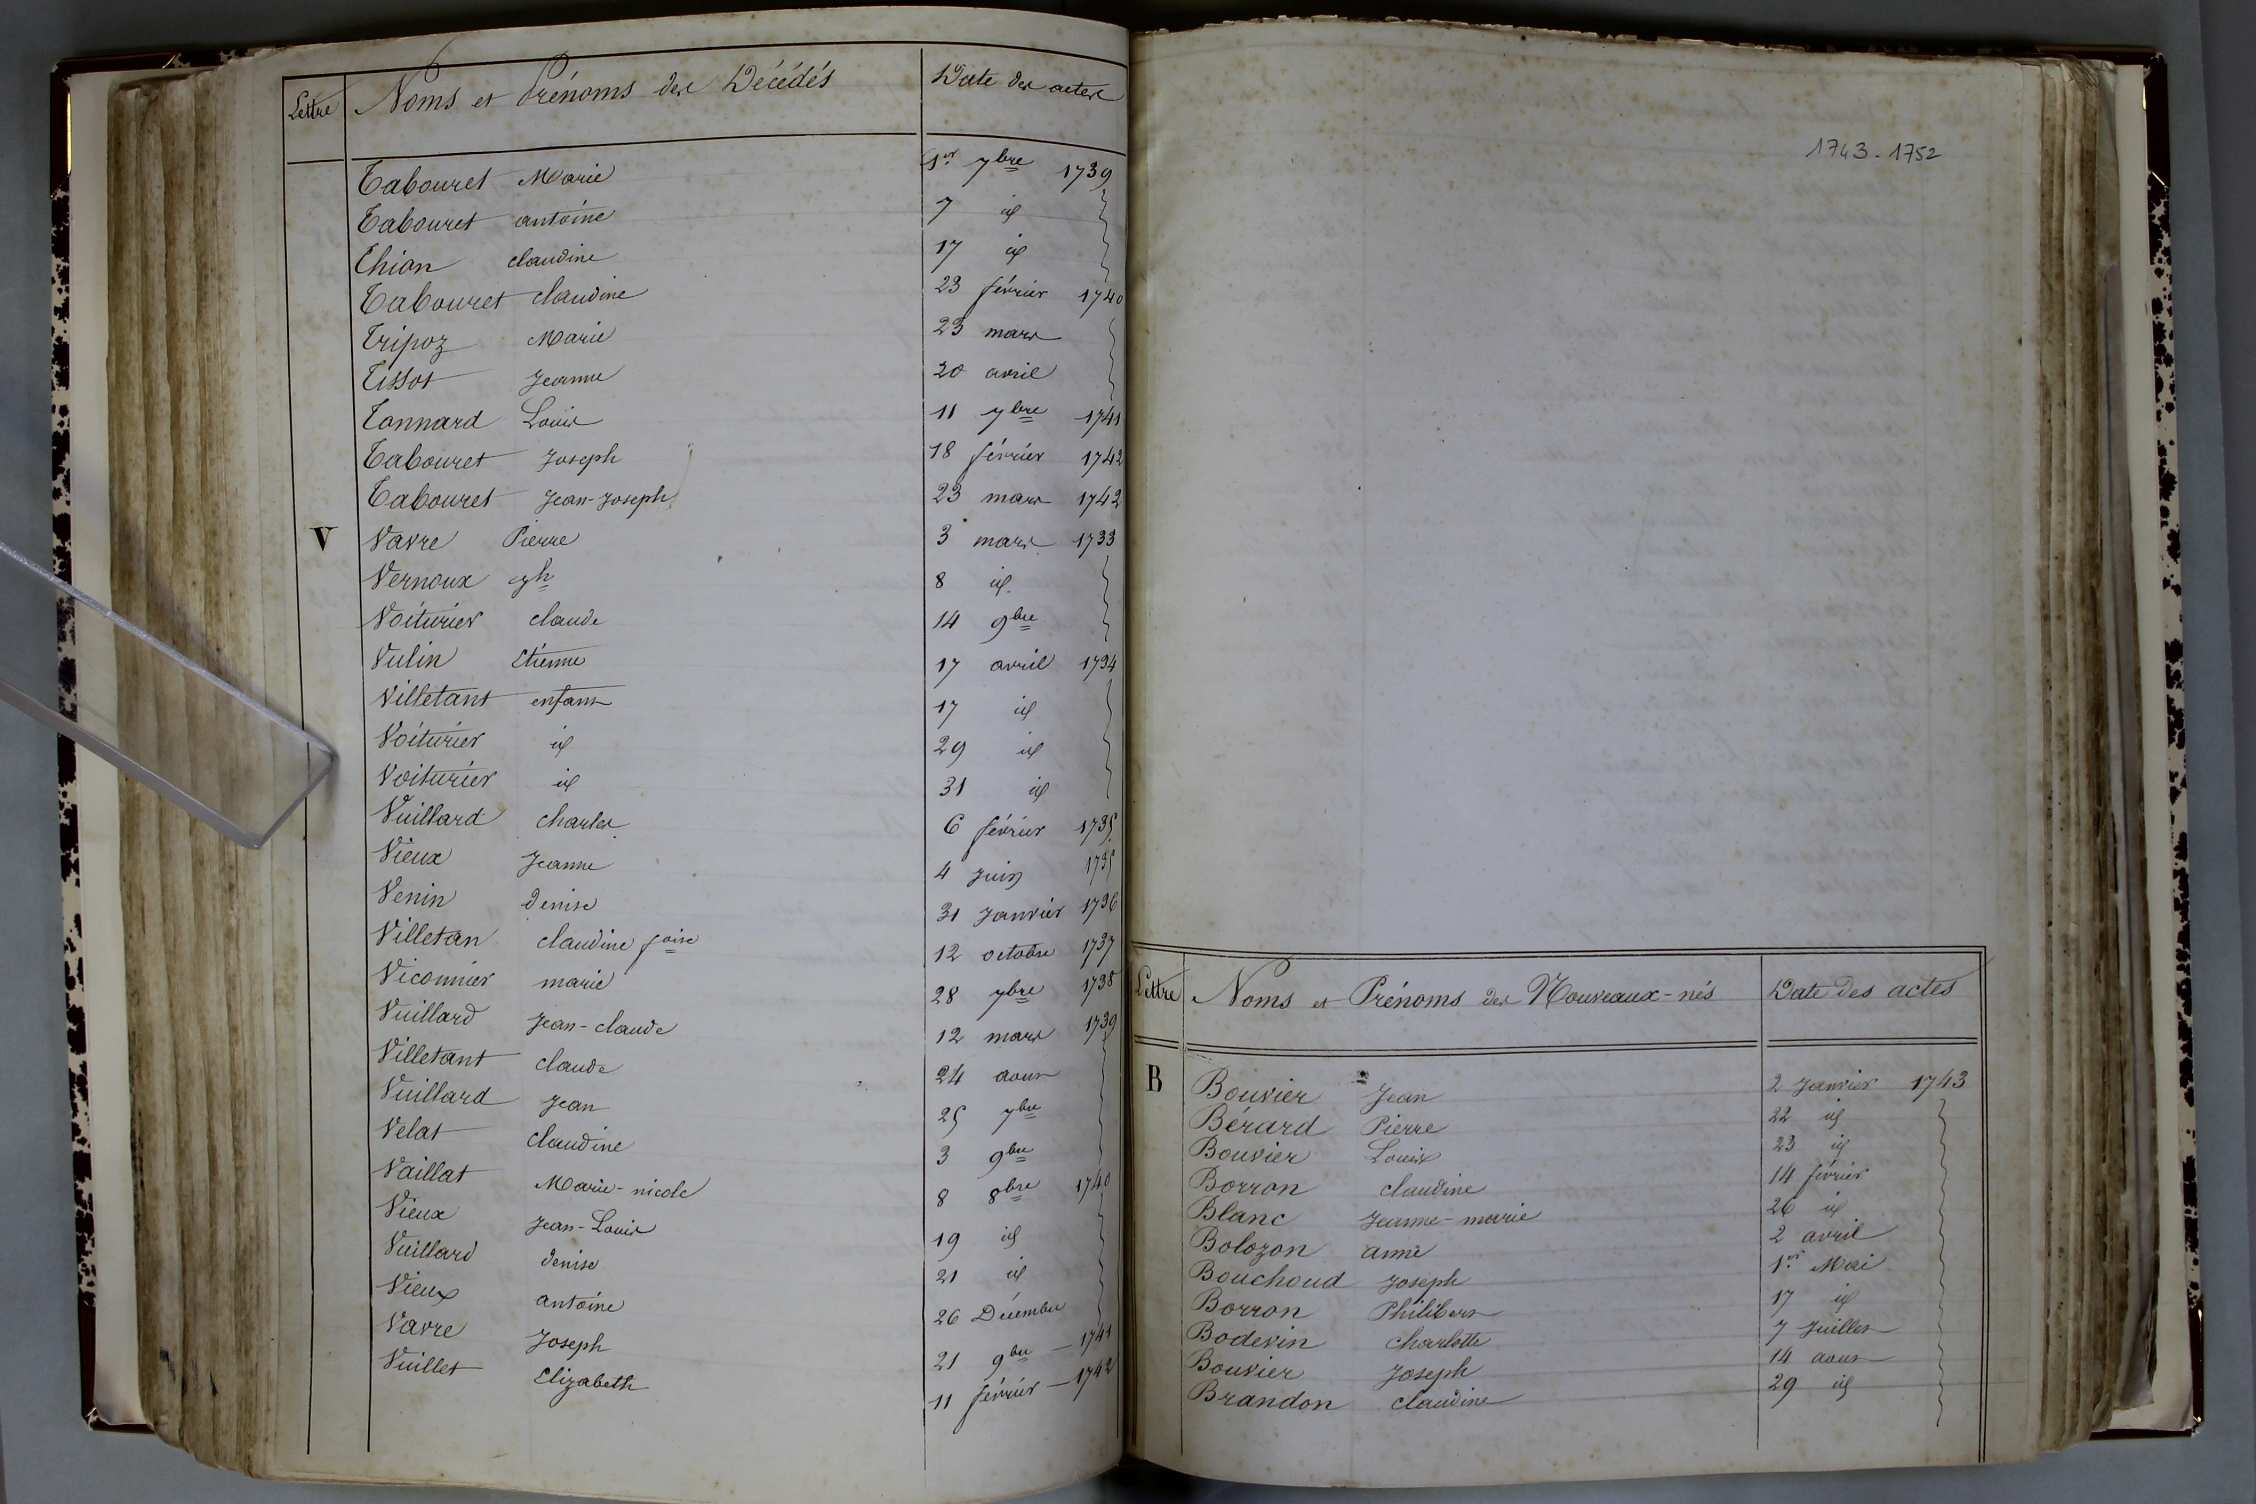 Lettre Noms et Prénoms des Décédés Date des actes
Tabouret Marie 1er 7bre 1739
Tabouret antoine 7 id
Thion claudine 17 id
Tabouret claudine 23 février 1740
Tripoz Marie 23 mars
Tissot Jeanne 20 avril
Tonnard Louis 11 7bre 1741
Tabouret Joseph 18 février 1742
Tabouret Jean-Joseph 23 mars 1742
V Vavre Pierre 3 mars 1733
Vernoux 8 id
Voiturier claude 14 9bre
Vulin Etienne 17 avril 1734
Villetant enfant 17 id
Voiturier id 29 id
Voiturier id 31 id
Vuillard charles 6 février 1735
Vieux Jeanne 4 Juin 1735
Venin denise 31 Janvier 1736
Villetan claudine foise 12 octobre 1737
Viconnier marie 28 7bre 1738
Vuillard Jean-claude 12 mars 1739
Villetant claude 24 aout
Vuillard Jean 25 7bre
Velat claudine 3 9bre
Vaillat Marie-nicole 8 8bre 1740
Vieux Jean-Louis 19 id
Vuillard denise 21 id
Vieux antoine 26 Décembre
Vavre Joseph 21 9bre - 1741
Vuillet Elizabeth 11 février - 1742
1743-1752
Lettre Noms et Prénoms des Nouveaux-nés Date des actes
B Bouvier Jean 2 Janvier 1743
Bérard Pierre 22 id
Bouvier Louis 23 id
Borron claudine 14 février
Blanc Jeanne-marie 26 id
Bolozon anne 2 avril
Bouchoud Joseph 1er Mai
Borron Philibert 17 id
Bodevin charlotte 7 Juillet
Bouvier Joseph 14 aout
Brandon claudine 29 id